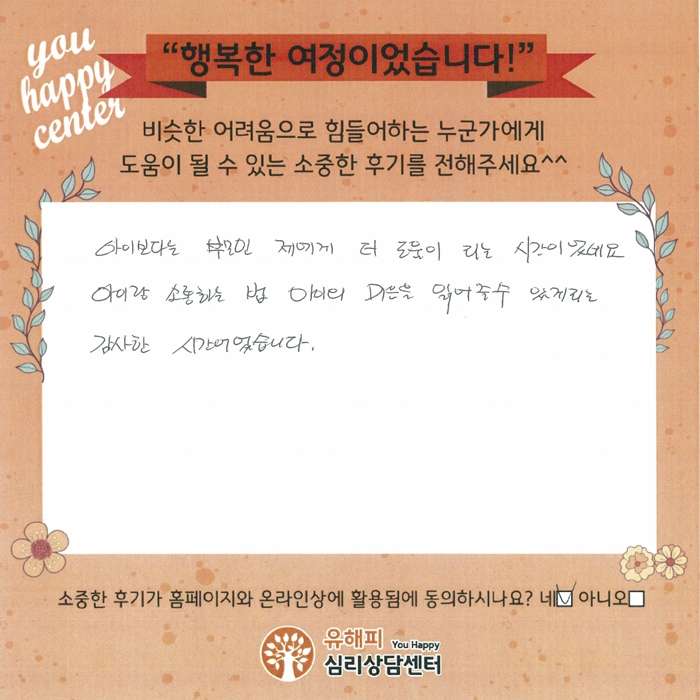 you
happy
center
“행복한 여정이었습니다!”
비슷한 어려움으로 힘들어하는 누군가에게
도움이 될 수 있는 소중한 후기를 전해주세요^^
아이보다는 부모인 제에게 더 도움이 되는 시간이 됐네요
아이랑 소통하는 법 아이의 마음을 읽어줄수 있게되는
감사한 시간이었습니다.
소중한 후기가 홈페이지와 온라인상에 활용됨에 동의하시나요? 네 아니오
유해피 You Happy
심리상담센터